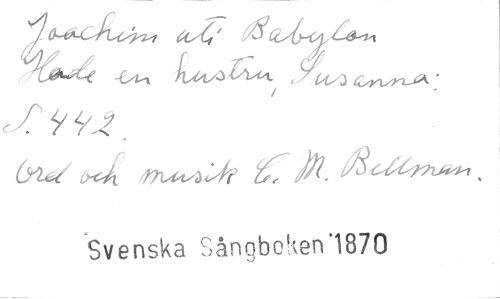 Joachim uti Babylon
Hade en hustru, Susanna:
S. 442.
Ord och musik C. M. Bellman.
Svenska Sångboken 1870